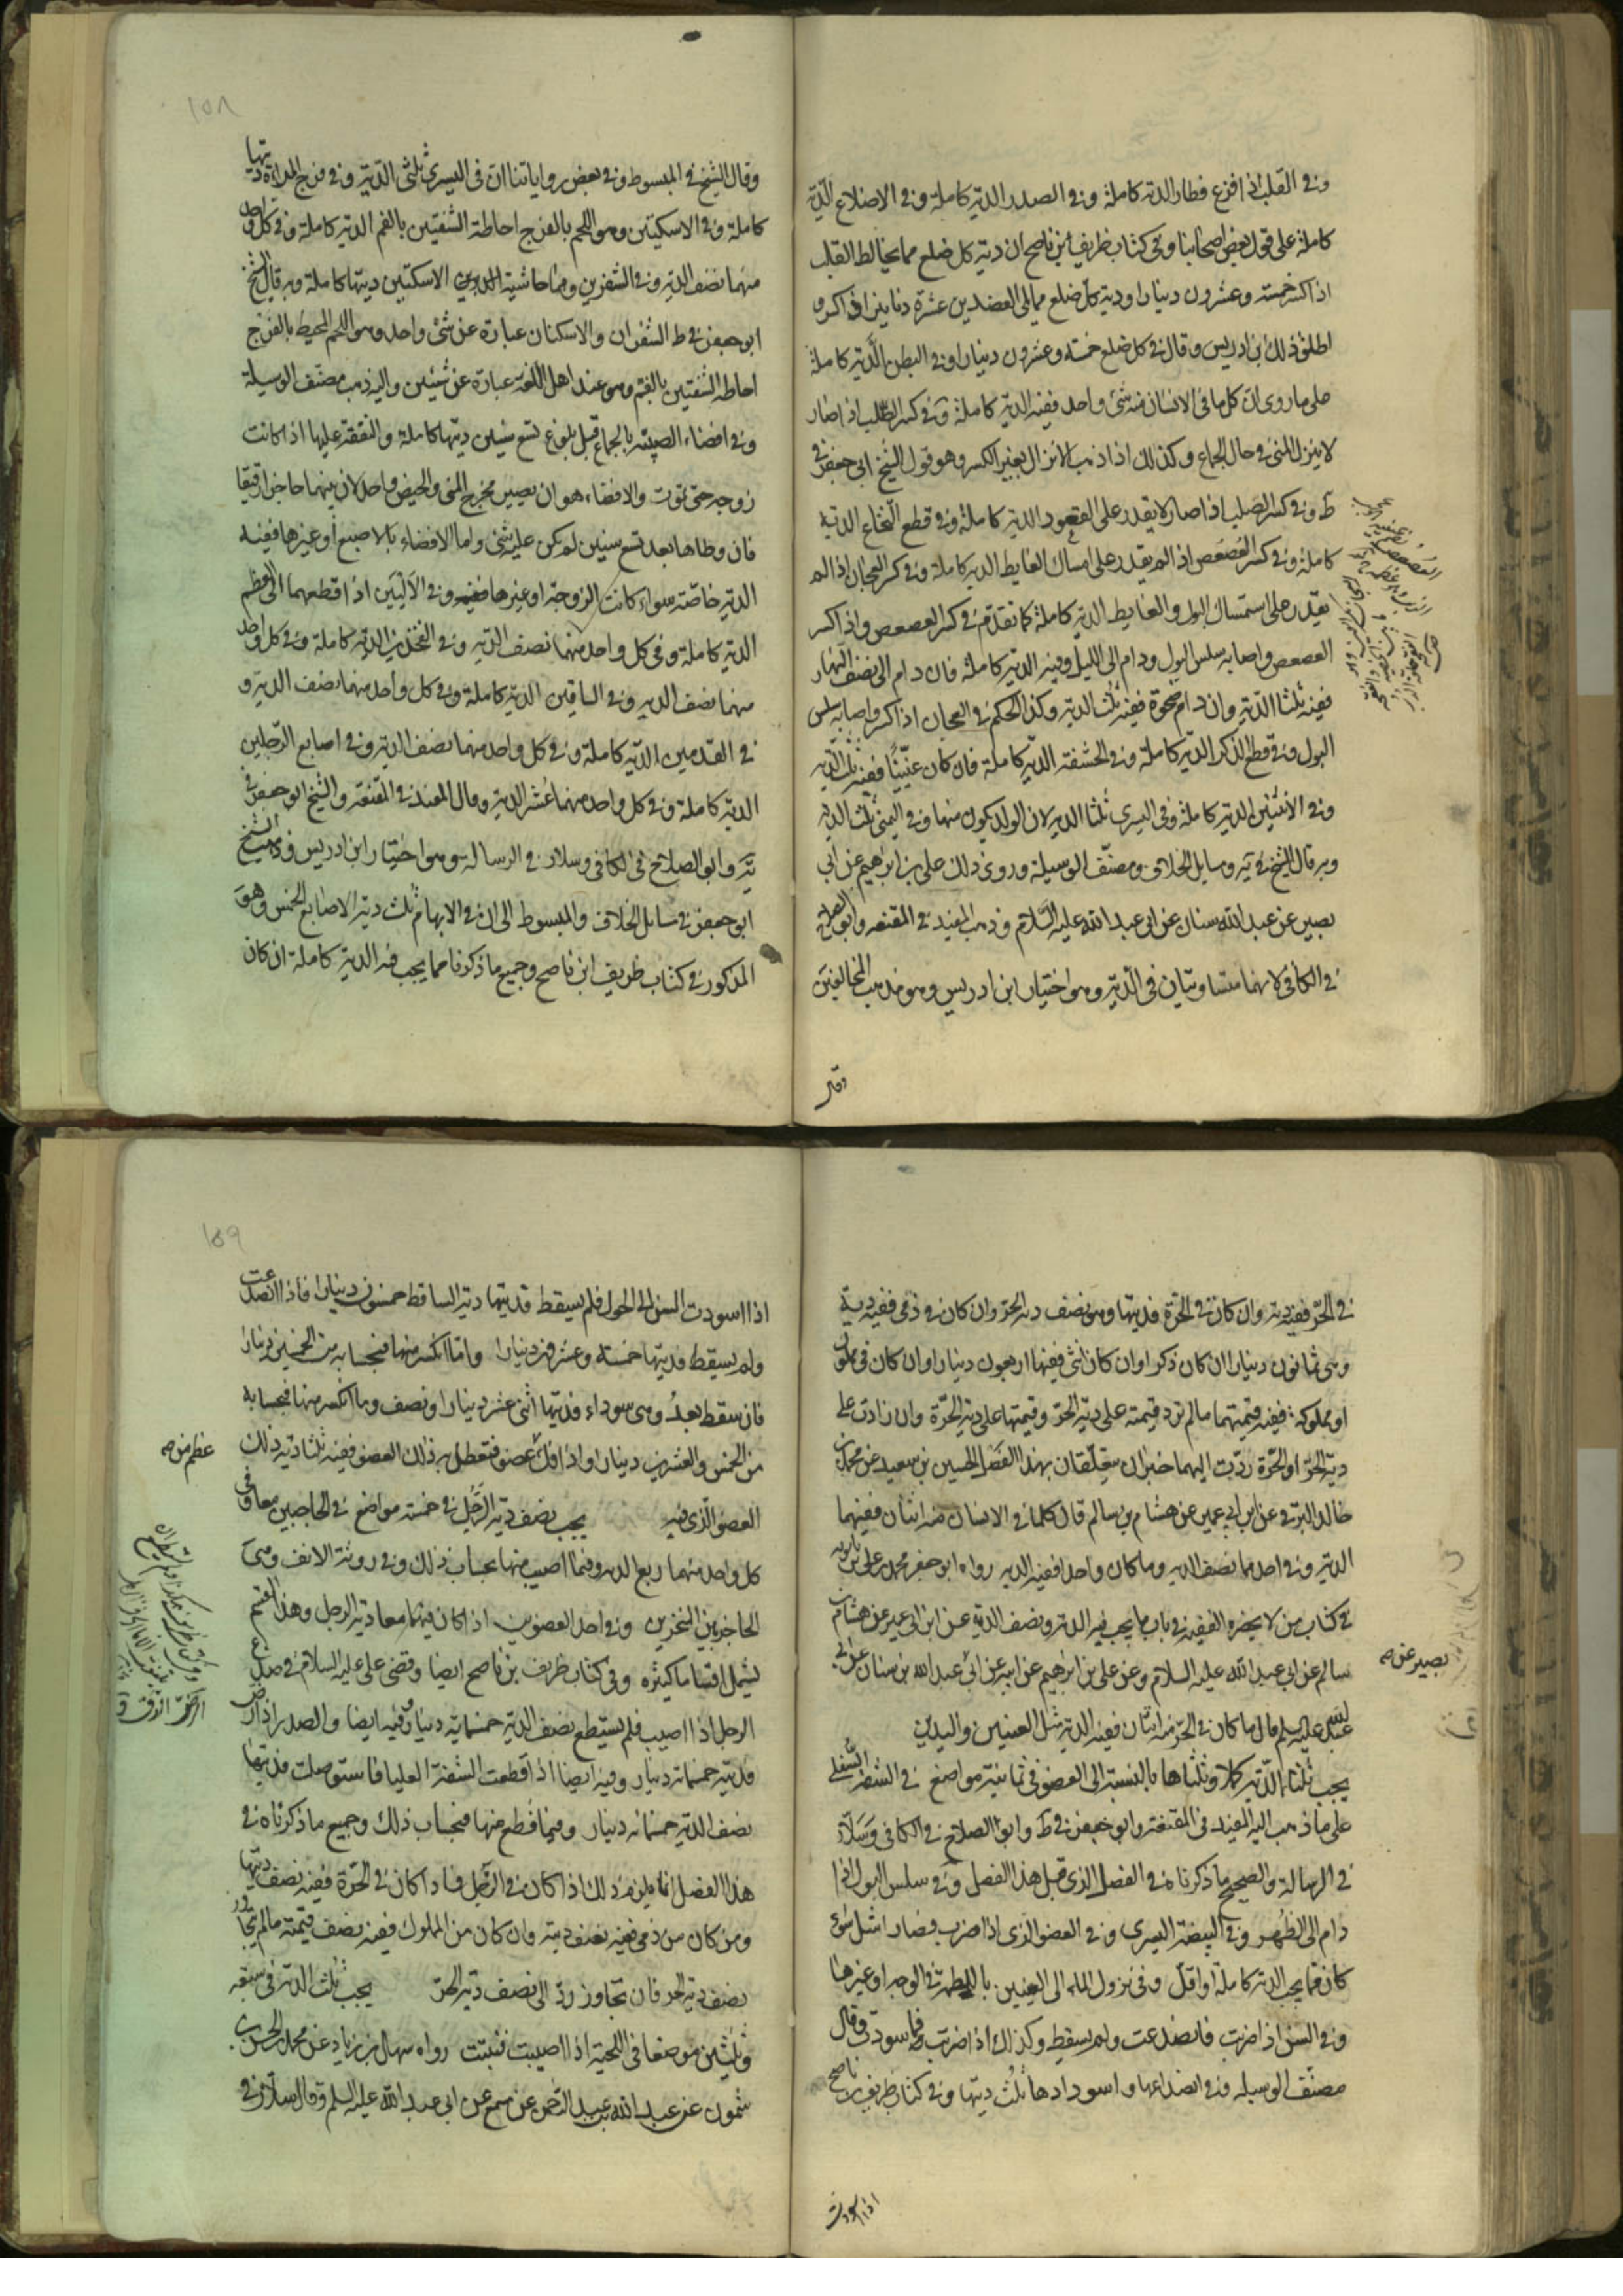 وفي القلب اذا فزع فطار الدية كاملة وفي الصدر الدية كاملة وفي الاضلاع الدية
كاملة على قول بعض اصحابنا وفي كتاب ظريف ابن ناصح ان دية كل ضلع مما يخالط القلب
اذا كسر خمسة وعشرون دينارا ودية كل ضلع مما يلي العضدين عشرة دنانير اذا كسر و
اطلق ذلك ابن ادريس وقال في كل ضلع خمسة وعشرون دينارا وفي البطن الدية كاملة
على ما روى ان كل ما في الانسان منه شئ واحد ففيه الدية كاملة وفي كسر الصلب اذا صار
لا ينزل المنى في حال الجماع وكذلك اذا ذهب الانزال بغير الكسر وهو قول الشيخ ابي جعفر في
ط وفي كسر الصلب اذا صار لا يقدر على القعود الدية كاملة وفي قطع النخاع الدية
كاملة وفي كسر العُصعُص اذا لم يقدر على امساك الغايط الدية كاملة وفي كسر العجان اذا لم
يقدر على استمساك البول والغايط الدية كاملة كما تقدم في كسر العصعص واذا كسر
العصعص واصابه سلس البول ودام الى الليل وفيه الدية كاملة فان دام الى نصف النهار
ففيه ثلثا الدية وان دام ضحوة ففيه ثلث الدية وكذا الحكم في العجان اذا كسر واصابه سلس
البول وفي قطع الذكر الدية كاملة وفي الحشفة الدية كاملة فان كان عنّينًا ففيه ثلث الدية
وفي الانثيين الدية كاملة وفي اليسرى ثلثا الدية لان الولد يكون منها وفي اليمنى ثلث الدية
وبه قال الشيخ في يه ومسايل الخلاف ومصنّف الوسيلة وروى ذلك علي بن ابرهيم عن ابي
بصير عن عبد الله سنان عن ابي عبد الله عليه السّلام وذهب المفيد في المقنعه وابو الصلاح
في الكافي لانهما متساويتان في الدّية وهو اختيار ابن ادريس وهو مذهب المخالفين
وقال
١٥٨
وقال الشيخ في المبسوط وفي بعض رواياتنا ان في اليسرى ثلثى الدّية وفي فرج المراة ديتها
كاملة وفي الاسكتين وهو اللحم بالفرج احاطة الشفتين بالفم الدية كاملة وفي كل واحد
منهما نصف الدية وفي الشفرين وهما حاشية الاسكتين ديتها كاملة وبه قال الشيخ
ابو جعفر في ط الشفران والاسكتان عبارة عن شئ واحد وهو اللحم المحيط بالفرج
احاطة الشفتين بالفم وهو عند اهل اللغة عبارة عن شيئين واليه ذهب مصنّف الوسيلة
وفي افضاء الصبية بالجماع قبل بلوغ تسع سنين ديتها كاملة والنفقة عليها اذا كانت
زوجه حتى تموت والافضاء هو ان يصير مخرج المنى والحيض واحد لان بينهما حاجزا رقيقا
فان وطاها بعد تسع سنين لم يكن عليه شئ واما الافضاء بالاصبع أو غيرها ففيه
الدية خاصّة سواء كانت الزوجة او غيرها وفي الآليَين اذا قطعهما الى العظم
الدية كاملة وفي كل واحد منهما نصف الدّية وفي الفخذين الدية كاملة وفي كل واحد
منهما نصف الدية وفي الساقين الدية كاملة وفي كل واحد منهما نصف الدية و
في القدمين الدّية كاملة وفي كل واحد منهما نصف الدية وفي اصابع الرّجلين
الدية كاملة وفي كل واحد منهما عُشر الدية وقال المفيد في المقنعة والشيخ ابو جعفر في
يَه وابو الصلاح في الكافي وسلار في الرسالة وهو اختيار ابن ادريس وذهب الشيخ
ابو جعفر في مسائل الخلاف والمبسوط الى ان في الابهام ثلث دية الاصابع الخمس وهو
المذكور في كتاب ظريف ابن ناصح وجميع ما ذكرنا مما يجب فيه الدية كاملة ان كان
في الحرّ ففيه دية وان كان في الحرّة فديتها وهو نصف دية الحرّ وان كان في ذمى ففيه دية
وهى ثمانون دينارا ان كان ذكرا وان كان انثى ففيها اربعون دينارا وان كان في مملوك
او مملوكة ففيه قيمتهما ما لم تزد قيمته على دية الحرّ وقيمتها على دية الحرّة وان زادت على
دية الحرّ او الحرّة ردّت اليهما خبران يتعلّقان بهذا الفصل الحسين بن سعيد عن محمد بن
خالد البرقي عن ابن ابي عمير عن هشام بن سالم قال كلما في الانسان منه اثنان ففيهما
الدية وفي احدهما نصف الدية وما كان واحدا ففيه الدية رواه ابو جعفر محمد بن على بن بابويه
في كتاب من لا يحضره الفقيه في باب ما يجب فيه الدية ونصف الدية عن ابن ابي عمير عن هشام بن
سالم عن ابي عبد الله عليه السلام وعن على بن ابرهيم عن ابيه عن ابي عبد الله بن سنان عن ابي
عبد الله عليه السلم قال ما كان في الحرّ منه اثنان ففيه الدية مثل العينين واليدين
يجب ثلثا الدّية كملا وثلثاها بالنسبة الى العضو في ثمانية مواضع في الشفه السُّفلى
على ما ذهب اليه المفيد في المقنعة وابو جعفر في ط وابو الصلاح في الكافي وسَلاّر
في الرسالة والصحيح ما ذكرناه في الفصل الذى قبل هذا الفصل وفي سلس البول اذا
دام الى الظهر وفي البيضة اليسرى وفي العضو الذى اذا ضرب فصار اشل سواء
كان مما يجب الدية كاملة أو اقلّ وفي نزول الماء الى العينين باللطمة في الوجه او غيرها
وفي السن اذا ضربت فانصدعت ولم يسقط وكذلك اذا ضربت فاسودت وقال
مصنّف الوسيله وفي انصداعها واسودادها ثلُث ديتها وفي كتاب ظريف بن ناصح
بصير عن صح
اذا اسودت
١٥٩
اذا اسودت السن الى الحول فلم يسقط فديتها دية الساقط خمسون دينارا فاذا انصدعت
ولم يسقط فديتها خمسة وعشرون دينارا وامّا انكسر منها فبحسابه من الخمسين دينارا
فان سقط بعدُ وهى سوداء فديتها اثنى عشر دينارا ونصف وما انكسر منها فبحسابه
من الخمس والعشرين دينارا واذا فكّ عضو فتعطل به ذلك العضو ففيه ثلثا دية ذلك
عظم من صح
العضو الّذى فيه يجب نصف دية الرّجل في خمسة مواضع في الحاجبين معا وفي
كل واحد منهما ربع الدية وفيما اصيب منها بحساب ذلك وفي روثة الانف وهى
الحاجز بين المنخرين وفي احد العضوين اذا كان فيهما معا دية الرجل وهذا القسم
يشمل اقساما كثيره وفي كتاب ظريف بن ناصح ايضا وقضى على عليه السلام في صدغ
الرجل اذا اصيب فلم يستطع نصف الدية خمسماية دينار وفيه ايضا والصدر اذا رضّ
فديته خمسماية دينار وفيه ايضا اذا قطعت الشفة العليا فاستوصلت فديتها
نصف الدية خمسماية دينار وفيما قطع منها فبحساب ذلك وجميع ما ذكرناه في
هذا الفصل انما يلزمه ذلك اذا كان في الرّجل فاذا كان في الحرّة ففيه نصف ديتها
ومن كان من ذمى ففيه نصف ديته وان كان من المملوك ففيه نصف قيمته ما لم يتجاوز
نصف دية الحر فان تجاوز ردّ الى نصف دية الحرّ يجب ثلث الدية في سبعة
وثلثين موضعا في اللحية اذا اصيبت فنبتت رواه سهل بن زياد عن محمد بن الحسن بن
شمون عن عبد الله بن عبد الرّحمن عن مسمع عن ابي عبد الله عليه السلم وقال سلار في